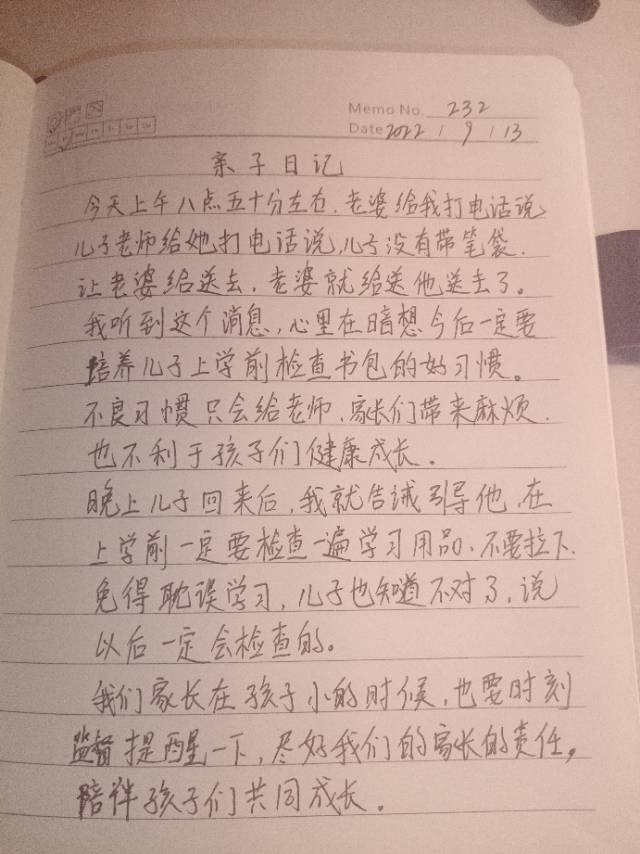 Memo No. 232
Date 2022 / 9 / 13
亲子日记
今天上午八点五十分左右，老婆给我打电话说
儿子老师给她打电话说，儿子没有带笔袋，
让老婆给送去，老婆就给送他送去了。
我听到这个消息，心里在暗想今后一定要
培养儿子上学前检查书包的好习惯。
不良习惯只会给老师，家长们带来麻烦，
也不利于孩子们健康成长。
晚上儿子回来后，我就告诫引导他，在
上学前一定要检查一遍学习用品，不要拉下，
免得耽误学习，儿子也知道不对了，说
以后一定会检查的。
我们家长在孩子小的时候，也要时刻
监督提醒一下，尽好我们的家长的责任，
陪伴孩子们共同成长。